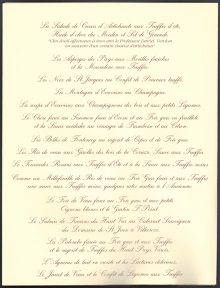 La Salade de Cœurs d'Artichauts aux Truffes d'été,
Huile d'olive du Moulin et Sel de Guérande
Les Asperges du Pays aux Morilles fraîches
et la Mousseline aux Truffes.
Les Noix de St Jacques au Confit de Poireaux truffé
La Montagne d'Ecrevisses au Champagne.
La soupe d'Ecrevisses aux Champignons des bois et aux petits Légumes.
Le Chou farci au Saumon frais d'Ecosse et au Foie Gras en
et la Sauce acidulée au vinaigre de Framboise et au Citron.
Les Filets de au vinaigre de Cèpes et de Foie gras
Le Ris de veau aux Girolles des bois de la Corrèze, Sauce aux Truffes
Le Tournedos Rossini aux Truffes d'Eté et à la Sauce aux Truffes noires
Comme un Millefeuille de Ris de veau au Foie Gras frais et aux Truffes
une sauce aux Truffes noires, quelques pâtes à l'Ancienne
Le Foie de Veau au Foie gras et aux petits
Oignons blancs et le Gratin
Le Salmis de du Haut Var au Cabernet Sauvignon
du Domaine de St Jean de Villecroze.
La farcie au Foie gras et aux Truffes
et le ragoût de Truffes du Haut Pays Varois.
L'Agneau de lait en cocotte et les Lactaires délicieux.
Le Jarret de Veau et le Confit de Légumes aux Truffes